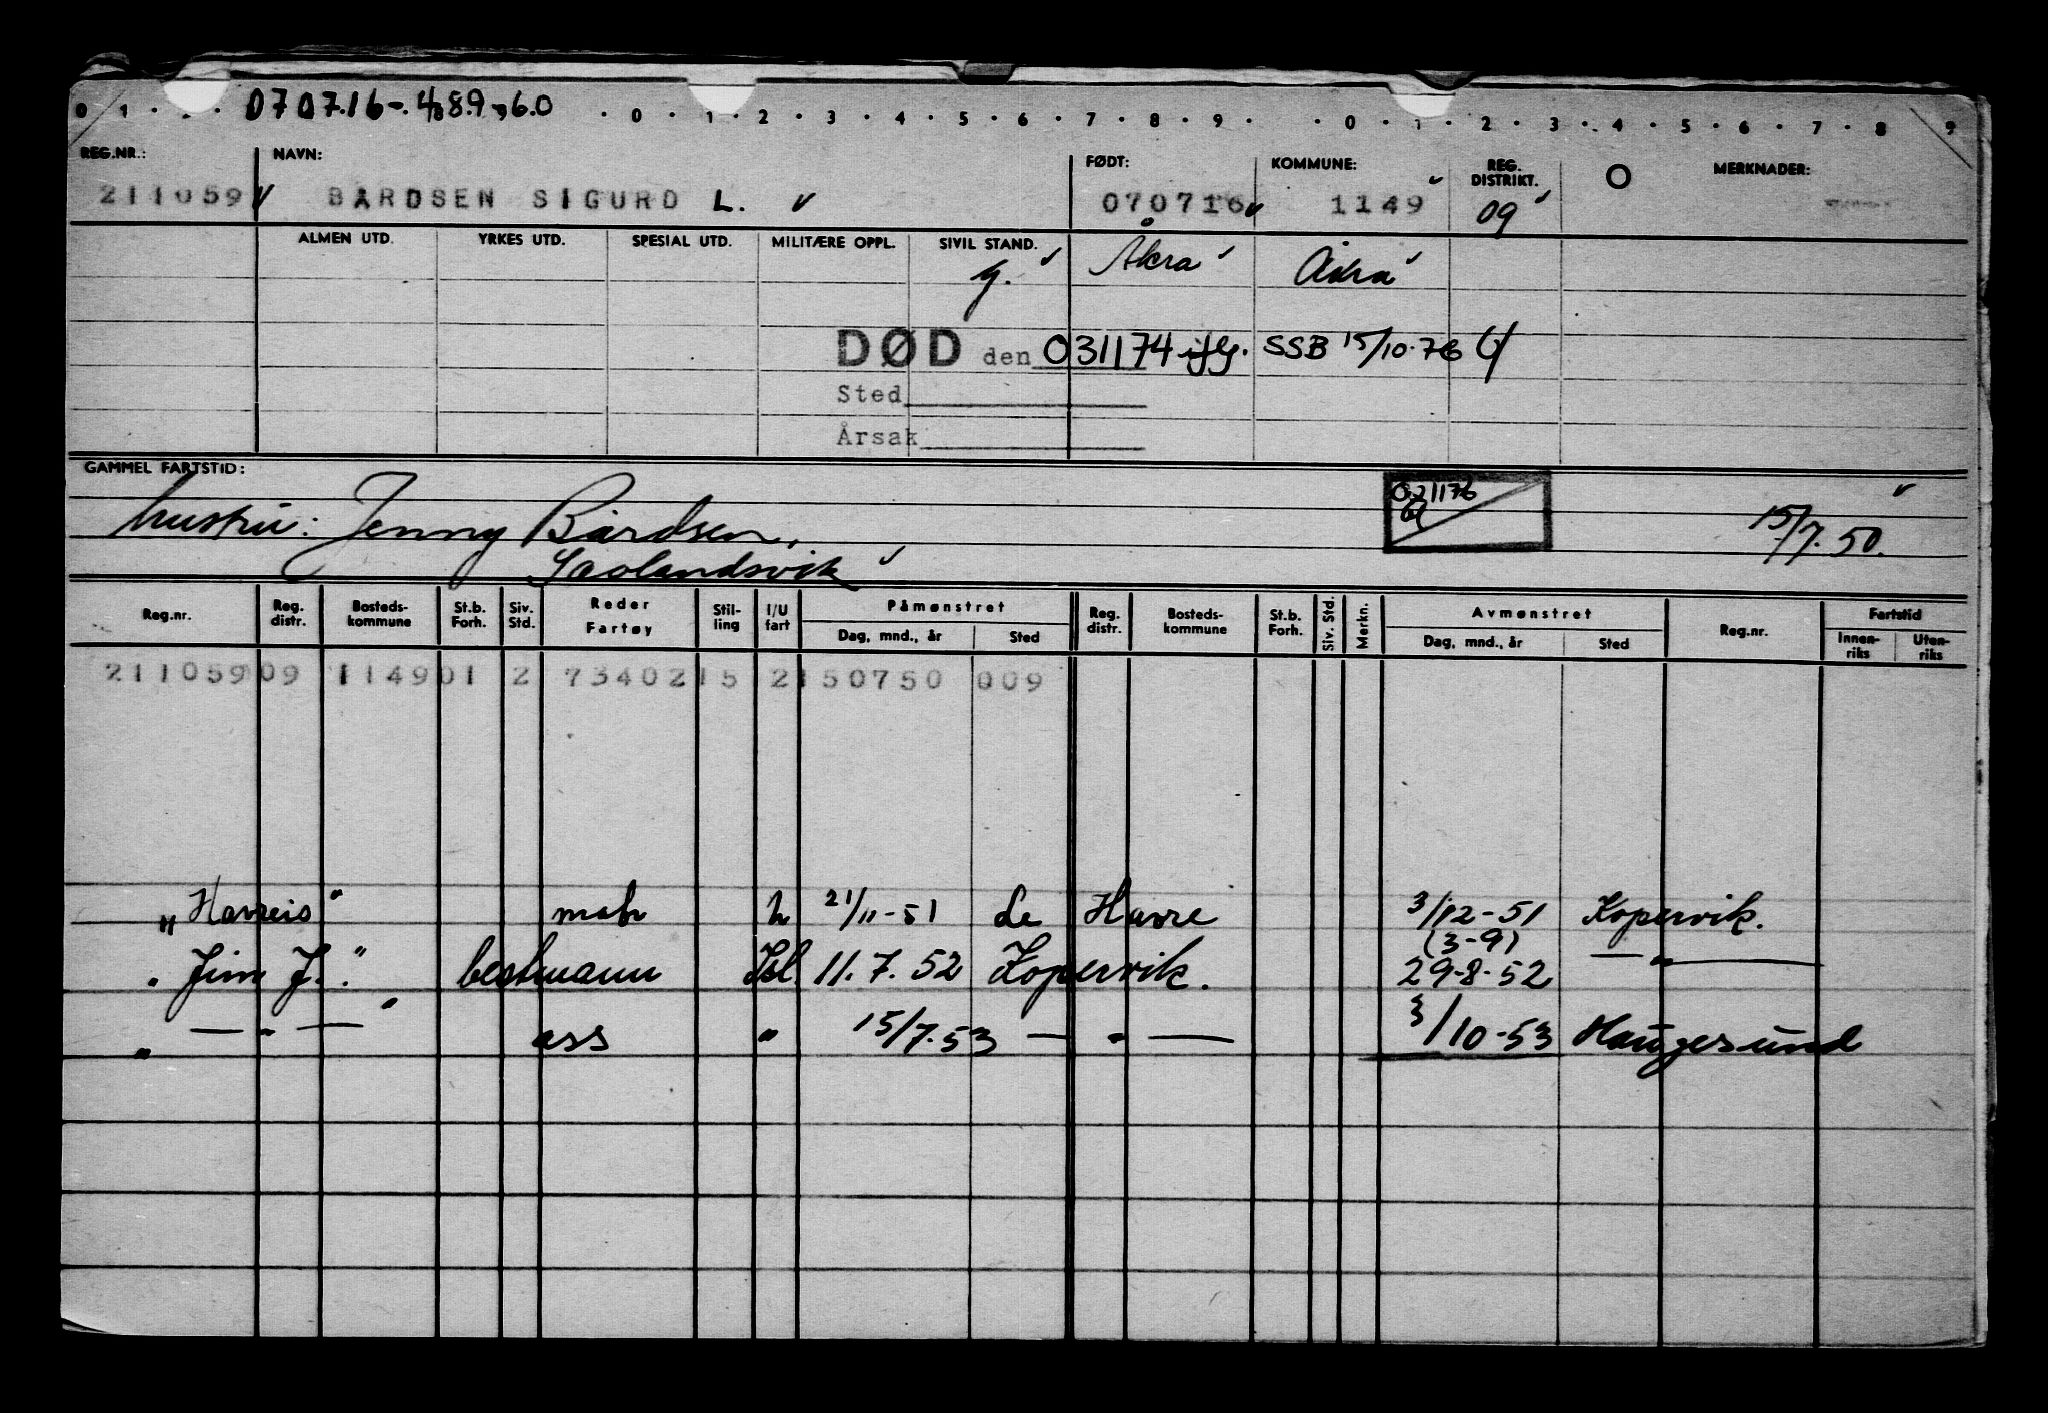 0 1 . . 070716-48960 . 0 . 1 . 2 . 3 . 4 . 5 . 6 . 7 . 8 . 9 . . 0 . 1 . 2 . 3 . 4 . 5 . 6 . 7 . 8 9
REG.NR.: NAVN: FØDT: KOMMUNE: REG. DISTRIKT. MERKNADER:
211059 BARDSEN SIGURD L. 070716 1149 09
ALMEN UTD. YRKES UTD. SPESIAL UTD. MILITÆRE OPPL. SIVIL STAND.
g. Åkra Åkra
DØD den 031174 ifg. SSB 15/10-76
Sted
Årsak
GAMMEL FARTSTID:
hustru: Jenny Bårdsen, 15/7.50.
Sævlandsvik
Reg.nr. Reg. distr. Bosteds-kommune St.b. Forh. Siv. Std. Reder Fartøy Stil-ling I/U fart Påmønstret Reg. distr. Bosteds-kommune St.b. Forh. Siv. Std. Merkn. Avmønstret Reg.nr. Fartstid
Dag, mnd., år Sted Dag, mnd., år Sted Innen-riks Uten-riks
211059 09 1149 01 2 73402 15 2 150750 009
"Havreis" matr h 21/11-51 Le Havre 3/12-51 Kopervik.
(3-9)
"Jim J." bestmann Isl. 11.7.52 Kopervik. 29-8-52 — " —
" — " — " ass " 15/7.53 — " — 3/10-53 Haugesund